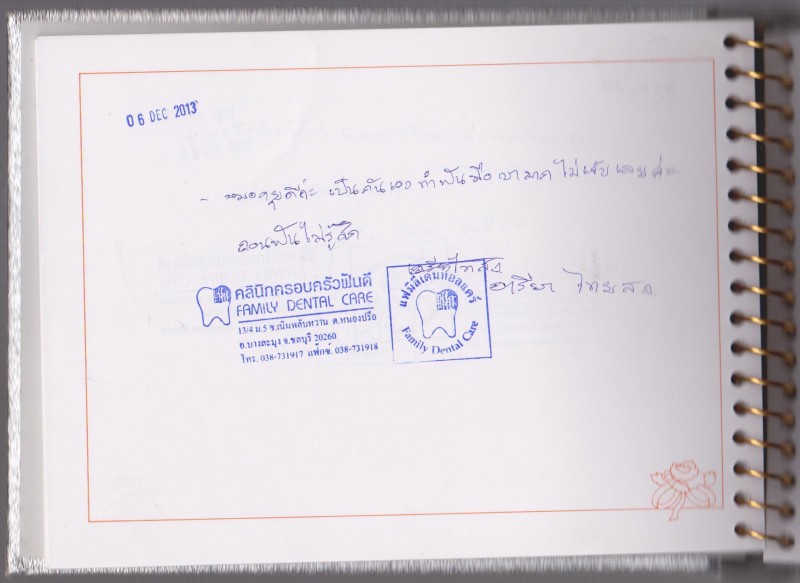 06 DEC 2013
- หมอคุยดีค่ะ เป็นกันเอง ทำฟันมือเบามาก ไม่เจ็บเลย
ถอนฟันไม่รู้สึก
อารียา ไทยสง
คลินิกครอบครัวฟันดี
FAMILY DENTAL CARE
13/4 ม.5 ซ.เนินพลับหวาน ต.หนองปรือ
อ.บางละมุง จ.ชลบุรี 20260
โทร. 038-731917 แฟ็กซ์. 038-731918
แฟมิลี่เดนทอลแคร์
Family Dental Care